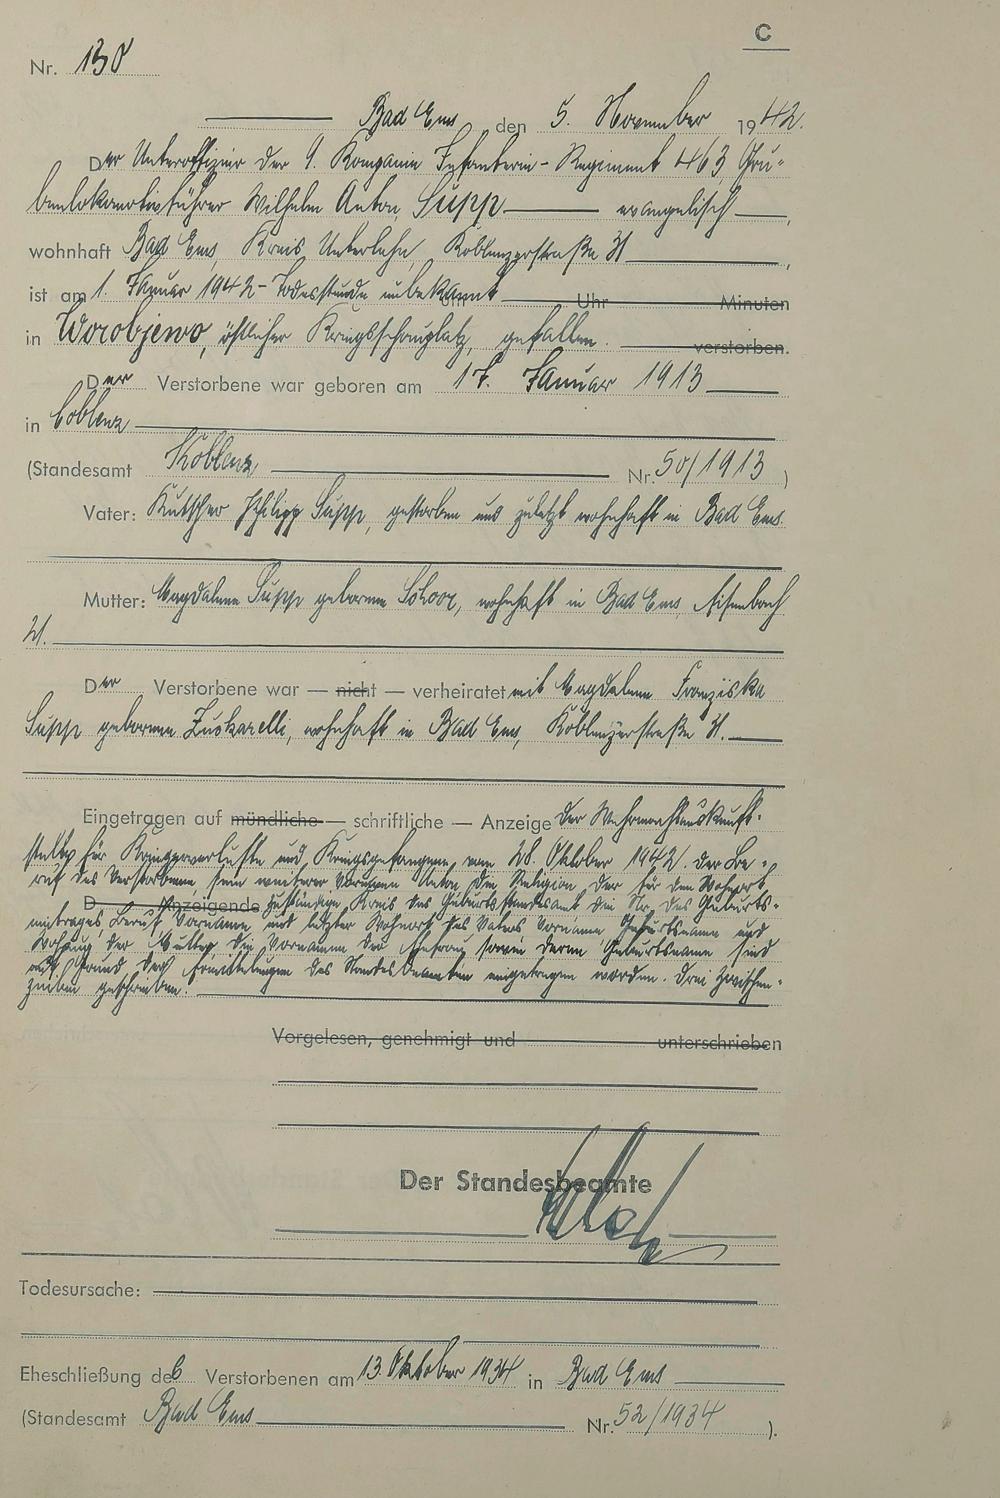 C
Nr. 130
Bad Ems den 5. November 1942.
Der Unteroffizier der 9. Kompanie Infanterie-Regiment 463 Gru-
benlokomotivführer Wilhelm Anton Supp evangelisch,
wohnhaft Bad Ems, Kreis Unterlahn, Koblenzerstraße 31,
ist am 1. Januar 1942 - Todesstunde unbekannt um Uhr Minuten
in Worobjewo, östlicher Kriegsschauplatz, gefallen. verstorben.
Der Verstorbene war geboren am 17. Januar 1913
in Coblenz
(Standesamt Koblenz Nr. 50/1913)
Vater: Kutscher Philipp Supp, gestorben und zuletzt wohnhaft in Bad Ems.
Mutter: Magdalene Supp geborene, wohnhaft in Bad Ems,
21.
Der Verstorbene war — nicht — verheiratet mit Magdalene Franziska
Supp geborene Zuskarelli, wohnhaft in Bad Ems, Koblenzerstraße 31.
Eingetragen auf mündliche — schriftliche — Anzeige der Wehrmachtauskunft-
stelle für Kriegerverluste und Kriegsgefangene vom 28. Oktober 1942. Der Be-
ruf des Verstorbenen, sein weiterer Vorname Anton, die Religion, der für den Wohnort
D Anzeigende zuständige Kreis, das Geburtsstandesamt, die Nr. des Geburts-
eintrages, Beruf, Vorname und letzter Wohnort des Vaters, Vorname, Geburtsname und
Wohnung der Mutter, die Vornamen der Ehefrau sowie deren Geburtsname sind
auf Grund der Ermittelungen des Standesbeamten eingetragen worden. Drei Zwischen-
zeilen geschrieben.
Vorgelesen, genehmigt und unterschrieben
Der Standesbeamte
Todesursache:
Eheschließung des Verstorbenen am 13. Oktober 1934 in Bad Ems
(Standesamt Bad Ems Nr. 52/1934).